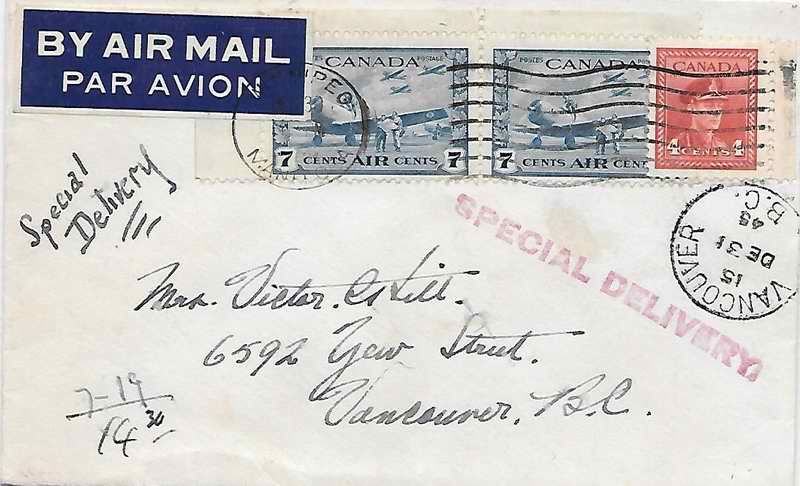 BY AIR MAIL
PAR AVION
CANADA
POSTES POSTAGE
7 CENTS AIR CENTS 7
CANADA
POSTES
7 CENTS AIR CENTS
CANADA
4 CENTS 4
Special
Delivery
SPECIAL DELIVERY
VANCOUVER
15
DE 31
48
B.C.
Mrs. Victor
6592 Yew Street.
Vancouver, B.C.
7-19
14 30